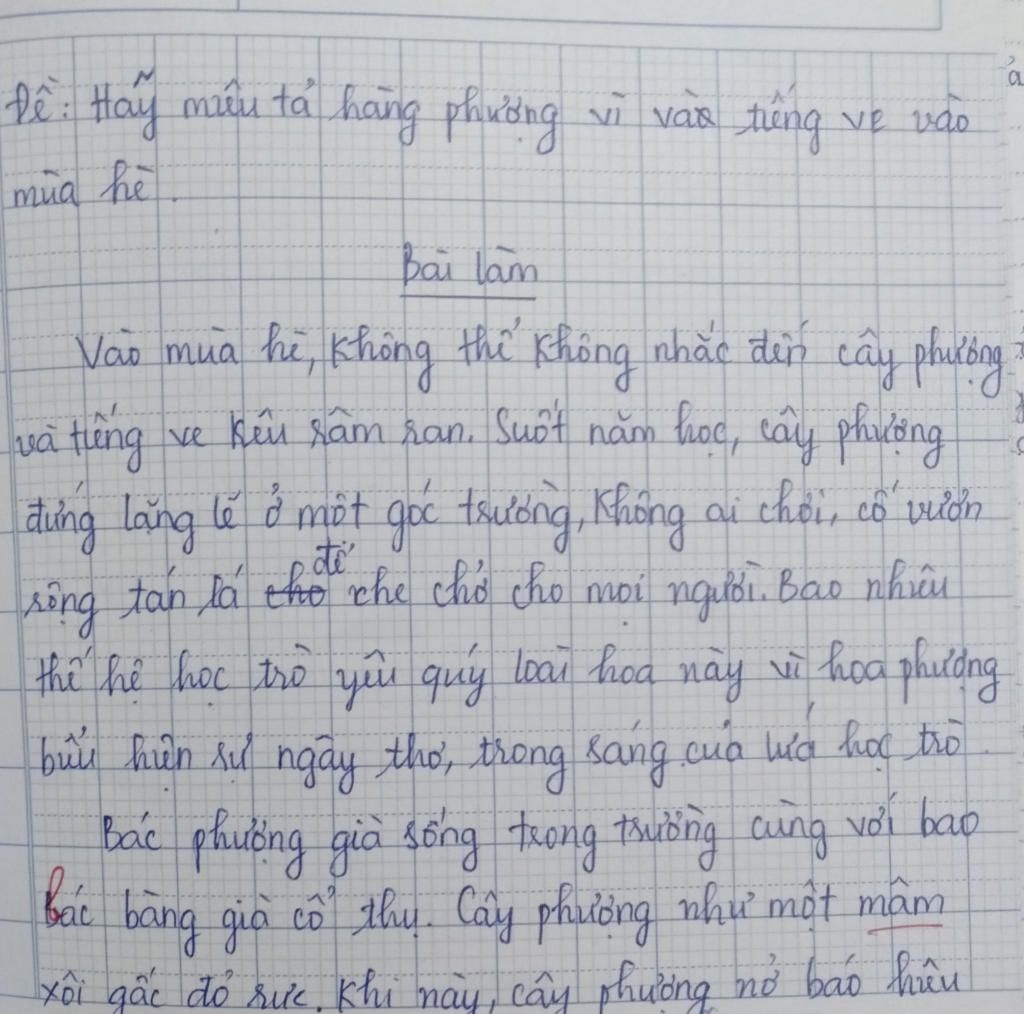 Đề: Hãy miêu tả hàng phượng vĩ và tiếng ve vào
mùa hè.
Bài làm
Vào mùa hè, không thể không nhắc đến cây phượng
và tiếng ve kêu râm ran. Suốt năm học, cây phượng
đứng lặng lẽ ở một góc trường, không ai chơi, cố vươn
rộng tán lá để che chở cho mọi người. Bao nhiêu
thế hệ học trò yêu quý loài hoa này vì hoa phượng
biểu hiện sự ngây thơ, trong sáng của lứa học trò.
Bác phượng già sống trong trường cùng với bao
bác bàng già cổ thụ. Cây phượng như một mâm
xôi gấc đỏ rực. Khi này, cây phượng nở báo hiệu